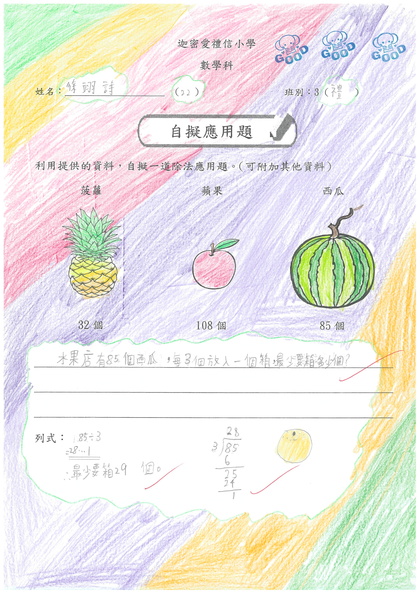 迦密愛禮信小學
數學科
姓名： (22) 班別：3（禮）
自擬應用題
利用提供的資料，自擬一道除法應用題。（可附加其他資料）
菠蘿 蘋果 西瓜
32 個 108 個 85 個
水果店有85個西瓜，每3個放入一個箱,最少要箱多少個?
列式：
85÷3
=28…1
最少要箱29個。
28
3 85
6
25
24
1
GOOD
GOOD
GOOD